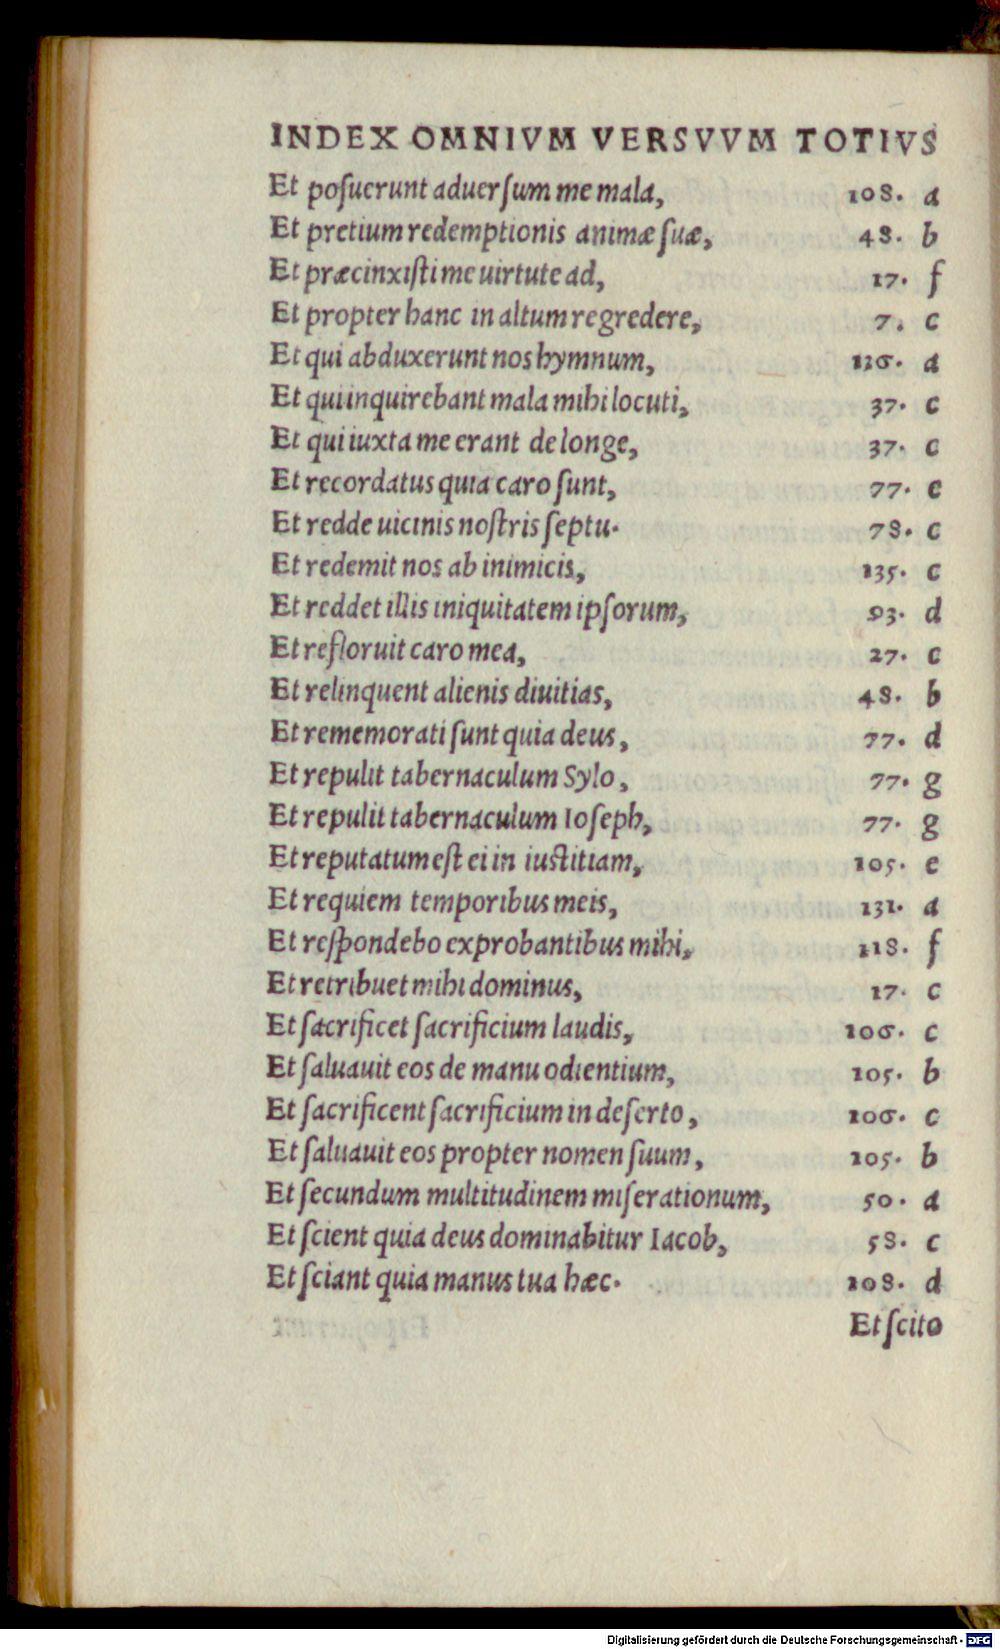 INDEX OMNIVM VERSVVM TOTIVS
Et posuerunt aduersum me mala, 108. a
Et pretium redemptionis animæ suæ, 48. b
Et præcinxisti me uirtute ad, 17. f
Et propter hanc in altum regredere, 7. c
Et qui abduxerunt nos hymnum, 136. a
Et qui inquirebant mala mihi locuti, 37. c
Et qui iuxta me erant de longe, 37. c
Et recordatus quia caro sunt, 77. e
Et redde uicinis nostris septu. 78. c
Et redemit nos ab inimicis, 135. c
Et reddet illis iniquitatem ipsorum, 93. d
Et refloruit caro mea, 27. c
Et relinquent alienis diuitias, 48. b
Et rememorati sunt quia deus, 77. d
Et repulit tabernaculum Sylo, 77. g
Et repulit tabernaculum Ioseph, 77. g
Et reputatum est ei in iustitiam, 105. e
Et requiem temporibus meis, 131. a
Et respondebo exprobantibus mihi, 118. f
Et retribuet mihi dominus, 17. c
Et sacrificet sacrificium laudis, 106. c
Et saluauit eos de manu odientium, 105. b
Et sacrificent sacrificium in deserto, 106. c
Et saluauit eos propter nomen suum, 105. b
Et secundum multitudinem miserationum, 50. a
Et scient quia deus dominabitur Iacob, 58. c
Et sciant quia manus tua hæc. 108. d
Et scito
Digitalisierung gefördert durch die Deutsche Forschungsgemeinschaft - DFG